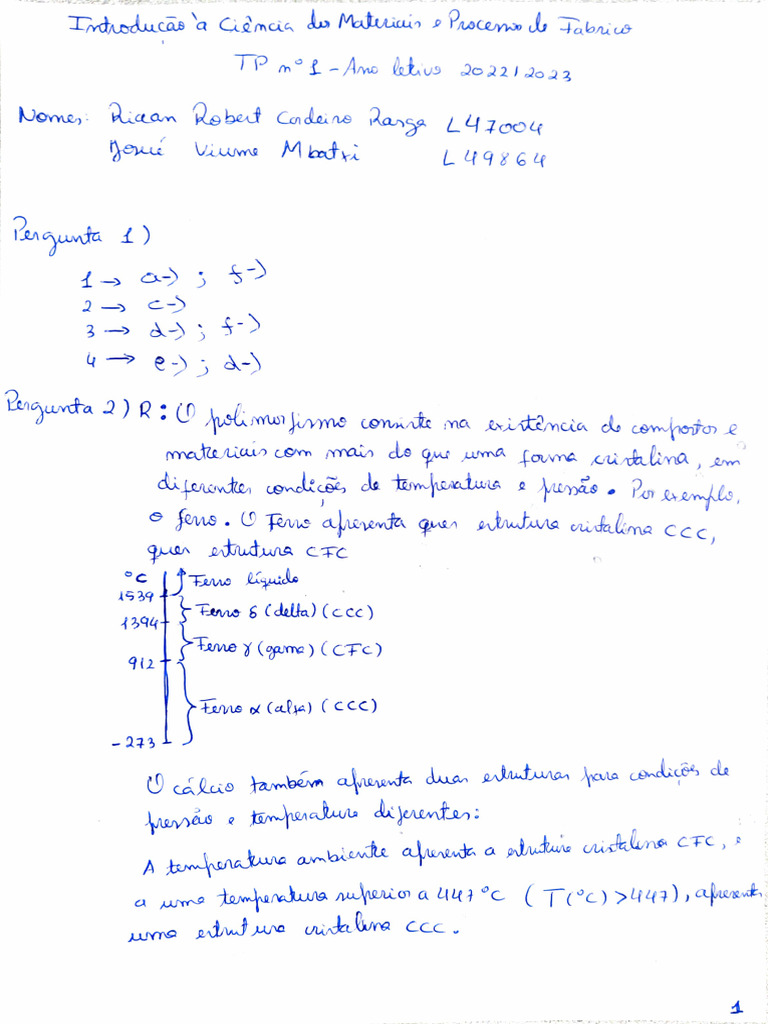 Introdução à Ciência dos Materiais e Processos de Fabrico
TP nº 1 - Ano letivo 2022/2023
Nomes: Robert Cordeiro Ranga L47004
Josué Mbatxi L49864
Pergunta 1)
1 → a-) ; f-)
2 → c-)
3 → d-) ; f-)
4 → e-) ; d-)
Pergunta 2) R: O polimorfismo consiste na existência de compostos e
materiais com mais do que uma forma cristalina, em
diferentes condições de temperatura e pressão. Por exemplo,
o ferro. O Ferro apresenta quer estrutura cristalina CCC,
quer estrutura CFC
°C
Ferro líquido
1539
Ferro δ (delta) (CCC)
1394
Ferro γ (gama) (CFC)
912
Ferro α (alfa) (CCC)
-273
O cálcio também apresenta duas estruturas para condições de
pressão e temperatura diferentes:
A temperatura ambiente apresenta a estrutura cristalina CFC, e
a uma temperatura superior a 447 °C ( T(°C) > 447), apresenta
uma estrutura cristalina CCC.
1